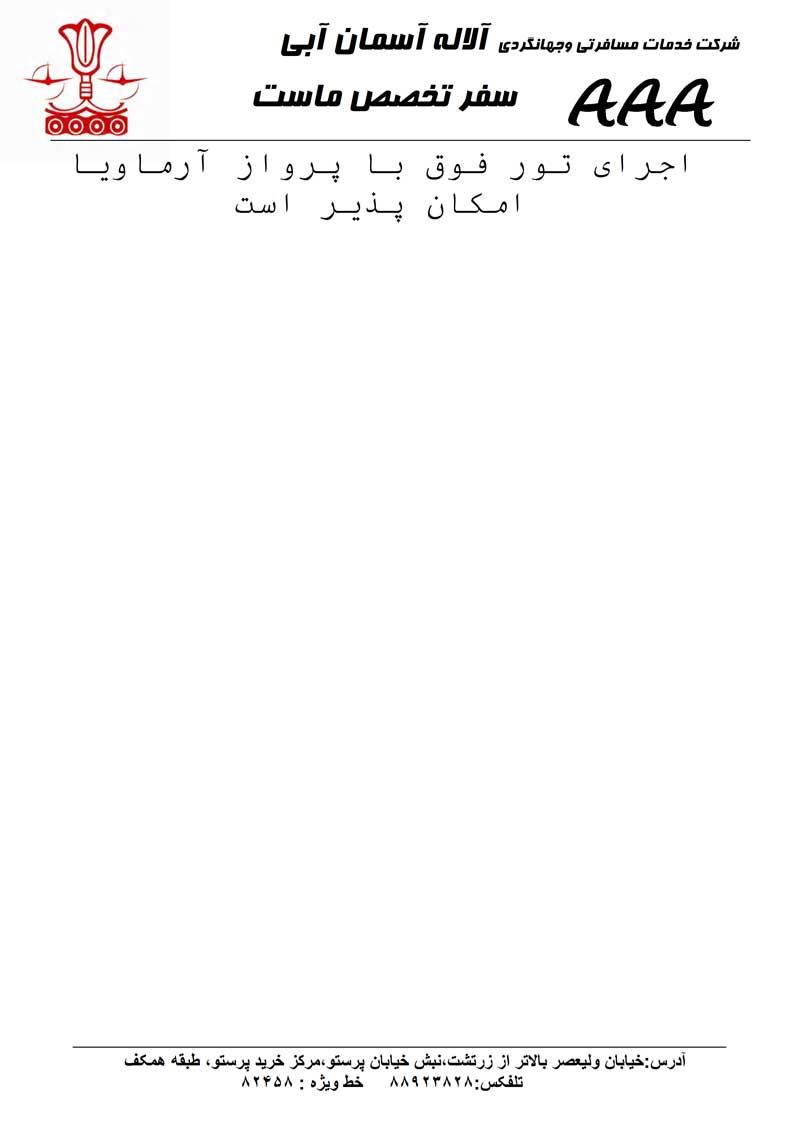 شرکت خدمات مسافرتی وجهانگردی آلاله آسمان آبی
AAA سفر تخصص ماست
اجرای تور فوق با پرواز آرماویا
امکان پذیر است
آدرس:خیابان ولیعصر بالاتر از زرتشت،نبش خیابان پرستو،مرکز خرید پرستو، طبقه همکف
تلفکس:۸۸۹۲۳۸۲۸ خط ویژه : ۸۲۴۵۸